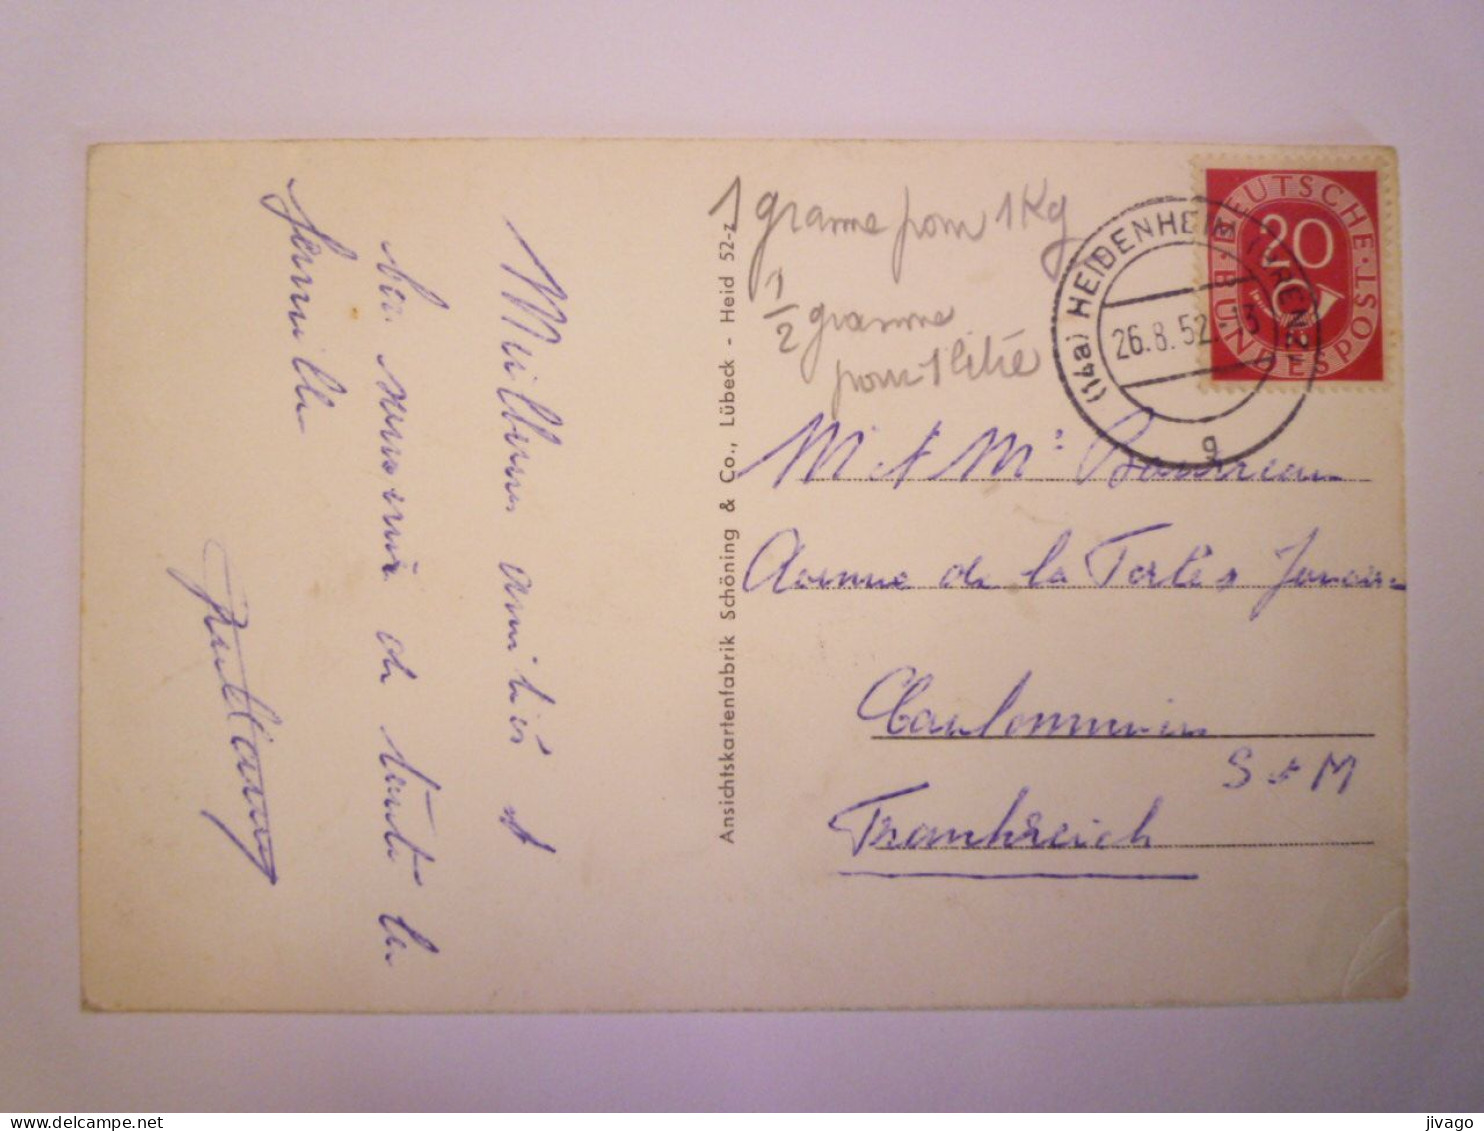 Meilleures amitiés et
bon souvenir de toute la
famille
Ansichtskartenfabrik Schöning & Co., Lübeck - Heid 52-z
1 gramme pour 1 Kg
1/2 gramme
pour 1 litre
(14a) HEIDENHEIM (BRENZ)
26.8.52.-13
g
DEUTSCHE BUNDESPOST
20
M et Mme
Avenue de la Ferté s Jouarre
Coulommiers
S et M
Frankreich
jivago